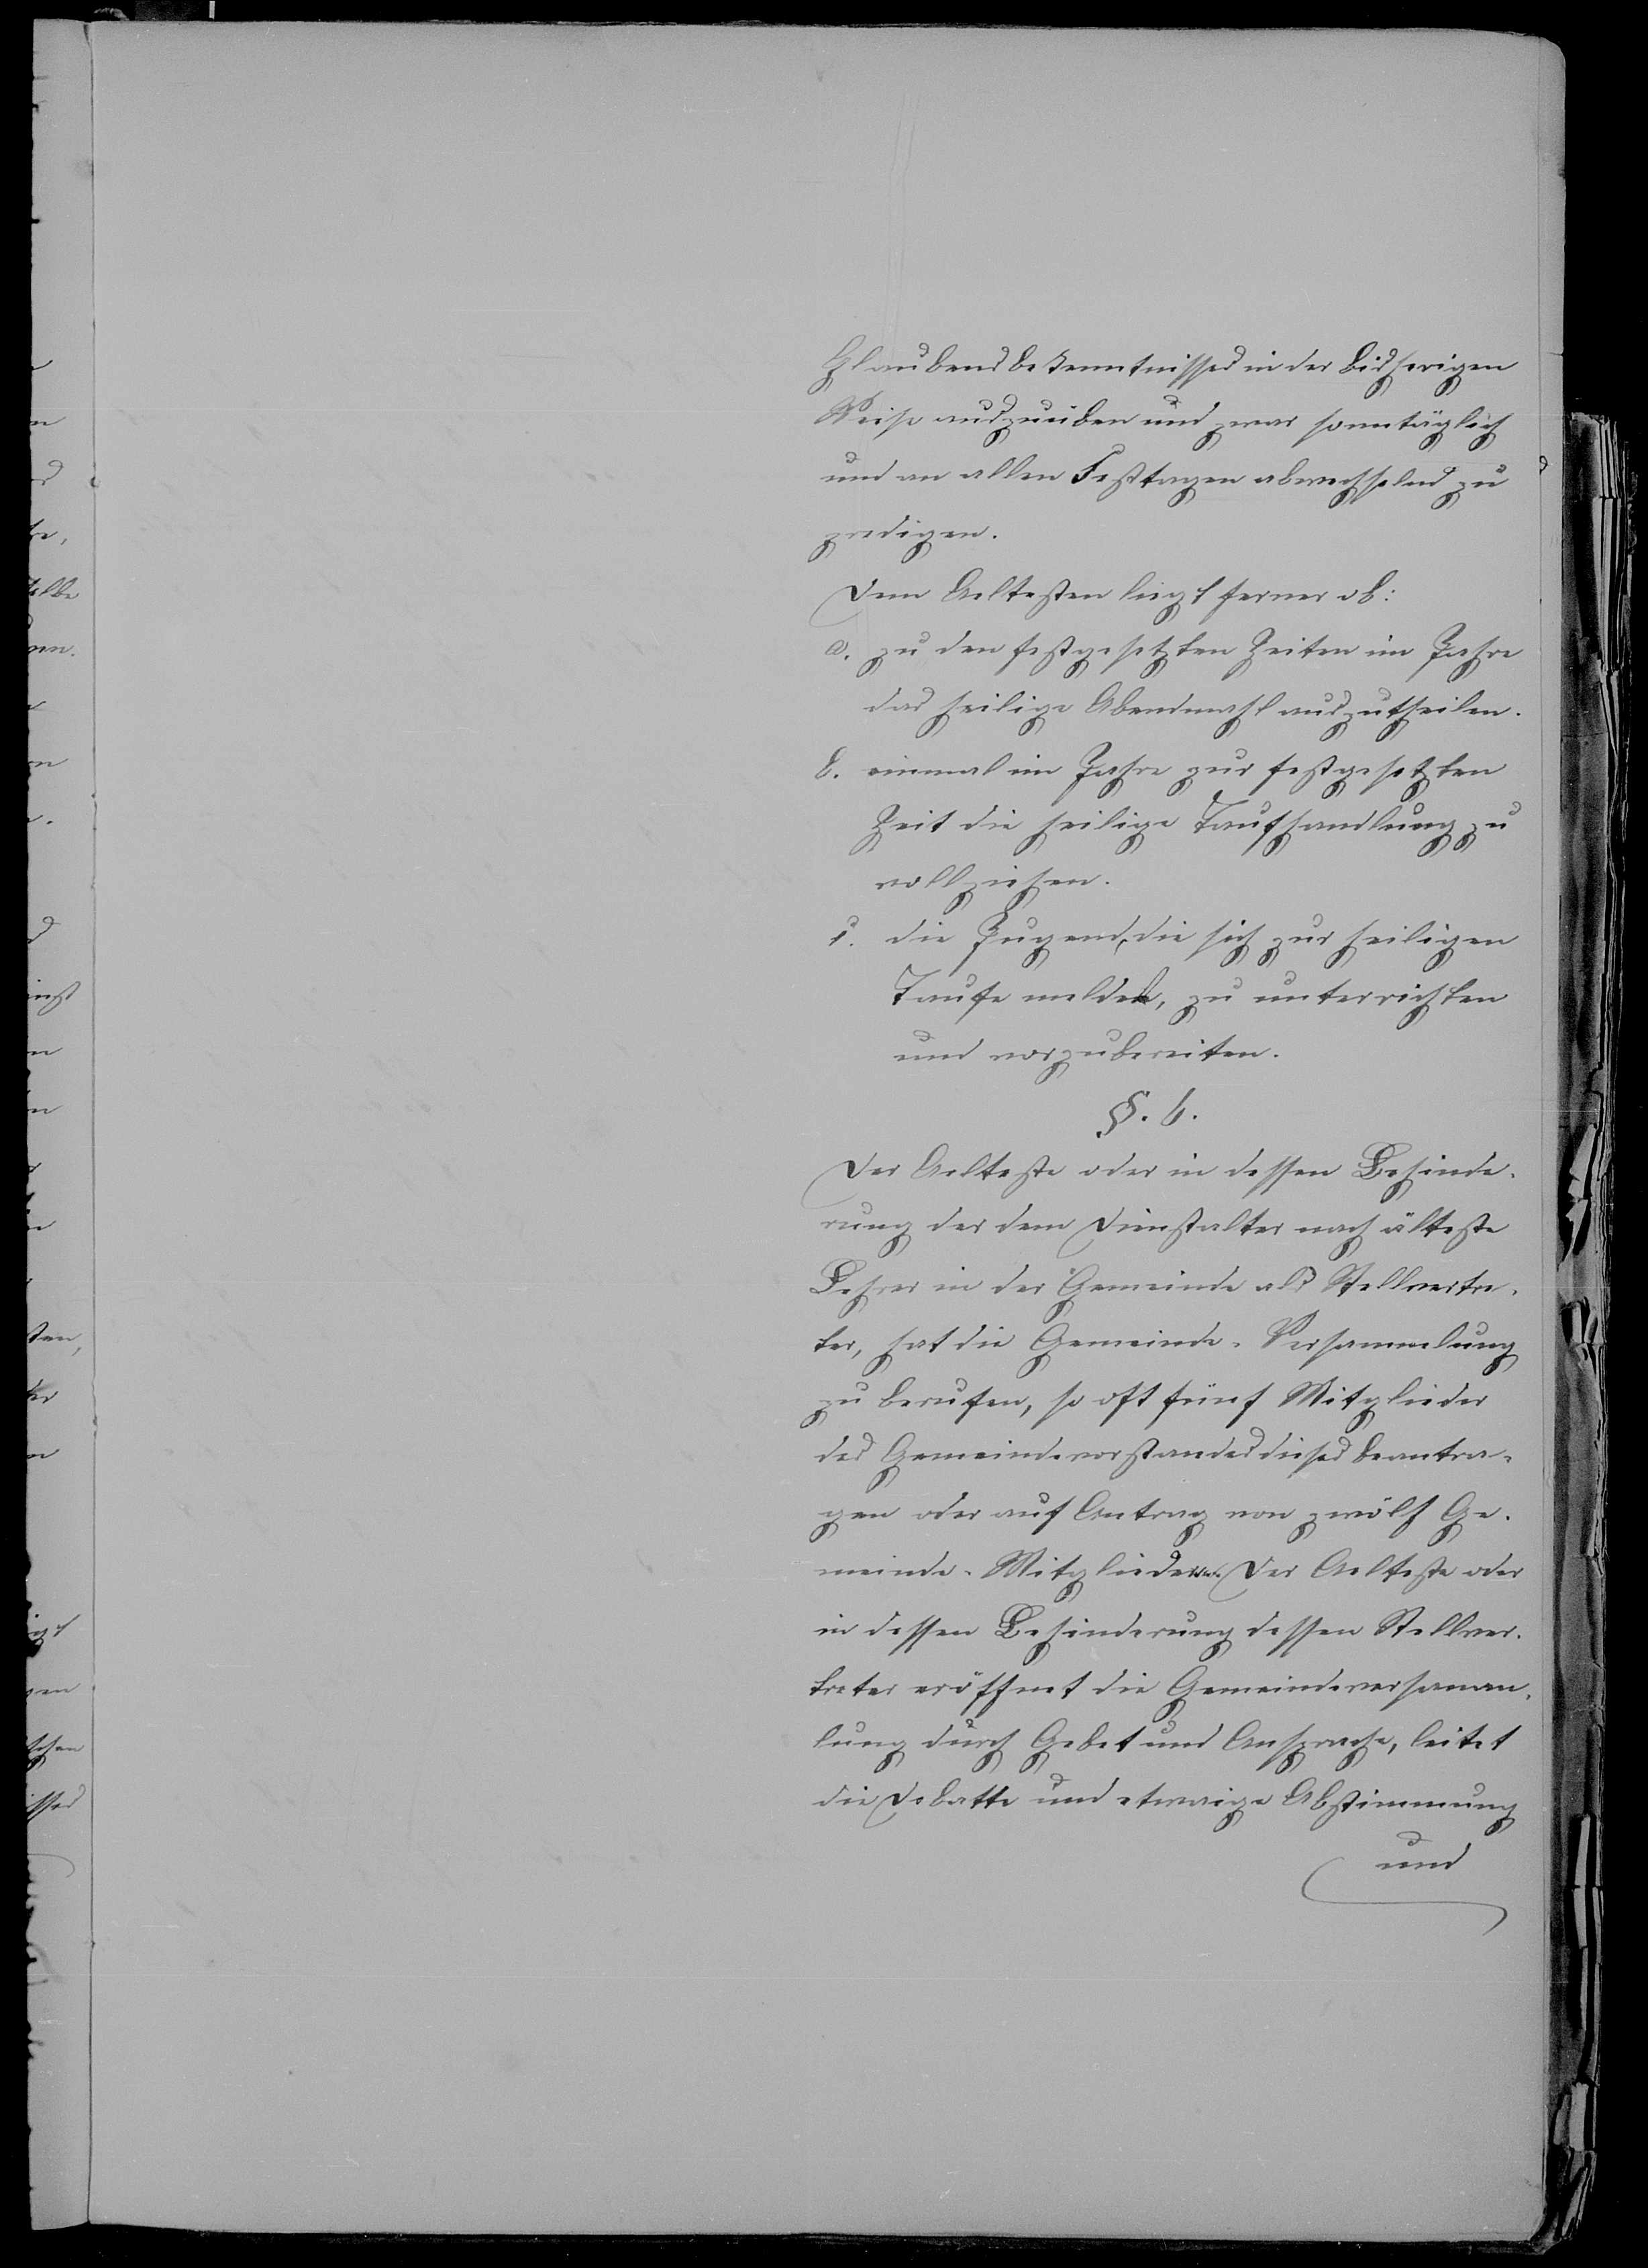 Glaubensbekenntnisses in der bisherigen
Weise auszuüben und zwar sonntäglich
und an allen Festtagen abwechselnd zu
predigen.
Dem Aeltesten liegt ferner ob:
a. zu den festgesetzten Zeiten im Jahre
das heilige Abendmahl auszutheilen.
b. einmal im Jahre zur festgesetzten
Zeit die heilige Taufhandlung zu
vollziehen.
c. die Jugend, die sich zur heiligen
Taufe meldet, zu unterrichten
und vorzubereiten.
§. 6.
Der Aelteste oder in dessen Behinde-
rung der dem Dienstalter nach älteste
Lehrer in der Gemeinde als Stellvertre-
ter, hat die Gemeinde-Versammlung
zu berufen, so oft fünf Mitglieder
des Gemeindevorstandes dieses beantra-
gen oder auf Antrag von zwölf Ge-
meinde-Mitgliedern. Der Aelteste oder
in dessen Behinderung dessen Stellver-
treter eröffnet die Gemeindeversamm-
lung durch Gebet und Ansprache, leitet
die Debatte und etwaige Abstimmung
und